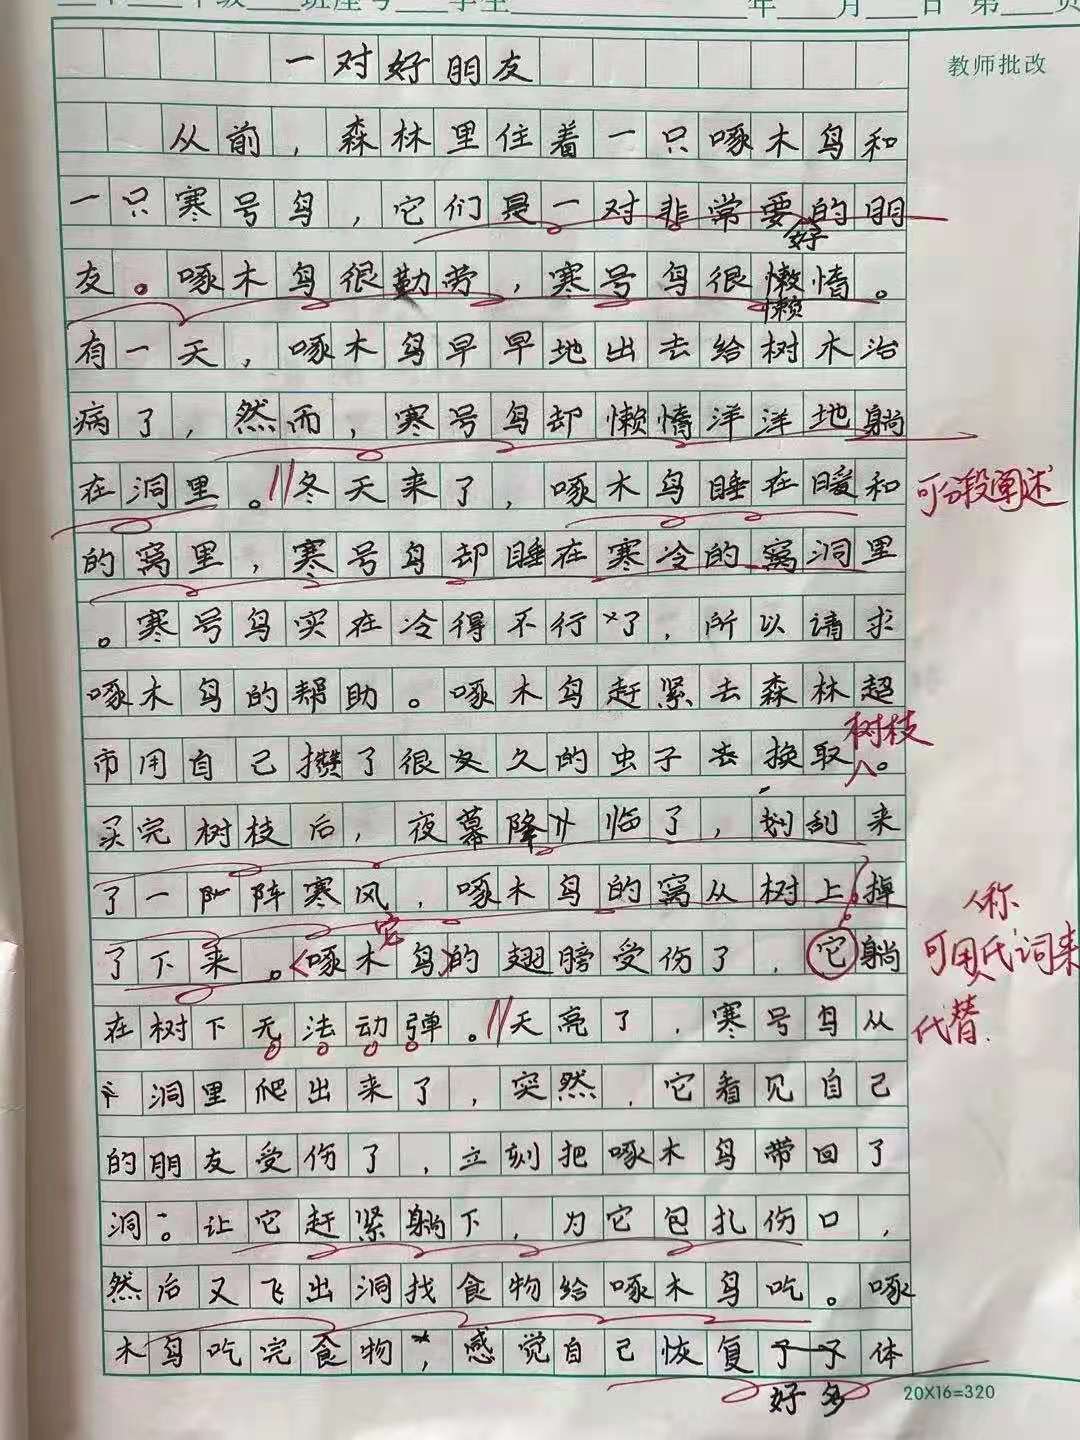 年级 班座号 学生 年 月 日 第 页
教师批改
一对好朋友
从前，森林里住着一只啄木鸟和
一只寒号鸟，它们是一对非常要的朋
好
友。啄木鸟很勤劳，寒号鸟很懒惰。
懒
有一天，啄木鸟早早地出去给树木治
病了，然而，寒号鸟却懒惰洋洋地躺
在洞里。冬天来了，啄木鸟睡在暖和
可分段阐述
的窝里，寒号鸟却睡在寒冷的窝洞里
。寒号鸟实在冷得不行了，所以请求
啄木鸟的帮助。啄木鸟赶紧去森林超
树枝
市用自己攒了很久的虫子去换取。
买完树枝后，夜幕降临了，刮来
了一阵寒风，啄木鸟的窝从树上掉
它
了下来。啄木鸟的翅膀受伤了，它躺
人称
可用代词来
代替.
在树下无法动弹。天亮了，寒号鸟从
洞里爬出来了，突然，它看见自己
的朋友受伤了，立刻把啄木鸟带回了
洞。让它赶紧躺下，为它包扎伤口，
然后又飞出洞找食物给啄木鸟吃。啄
木鸟吃完食物，感觉自己恢复了体
好多
20X16=320